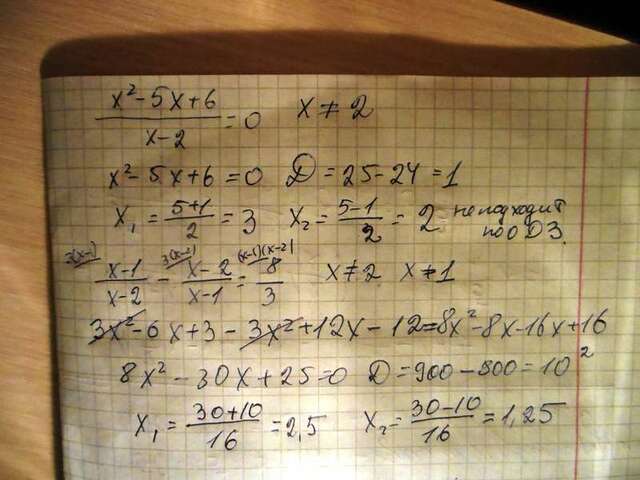 x²-5x+6/x-2 = 0 x ≠ 2
x²-5x+6=0 D=25-24=1
x₁ = 5+1/2 = 3 x₂ = 5-1/2 = 2 не подходит по ОДЗ.
3(x-1) 3(x-2) (x-1)(x-2)
x-1/x-2 - x-2/x-1 = 8/3 x≠2 x≠1
3x²-6x+3-3x²+12x-12=8x²-8x-16x+16
8x²-30x+25=0 D=900-800=10²
x₁ = 30+10/16 = 2,5 x₂ = 30-10/16 = 1,25